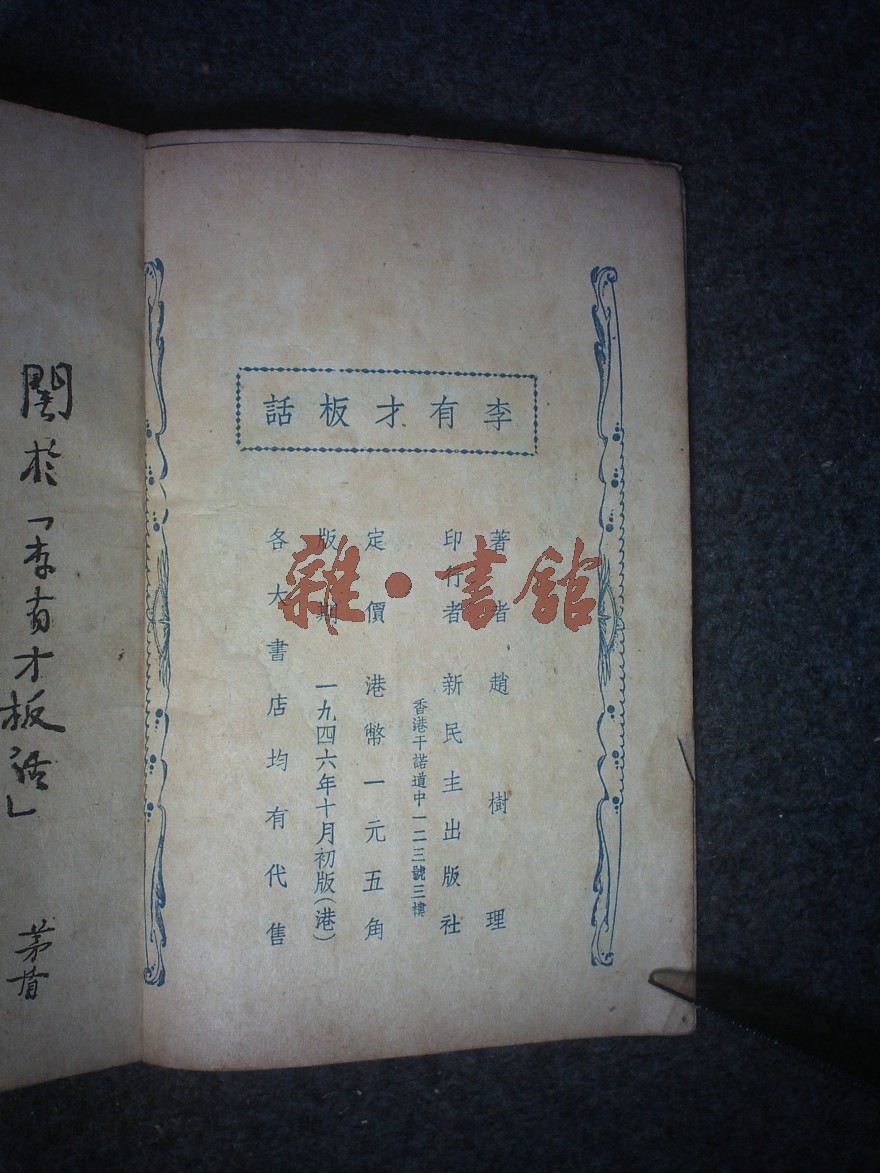 李有才板話
著者 趙樹理
印行者 新民主出版社
香港干諾道中一二三號三樓
定價 港幣一元五角
版期 一九四六年十月初版(港)
各大書店均有代售
關於「李有才板話」
茅盾
雜·書館